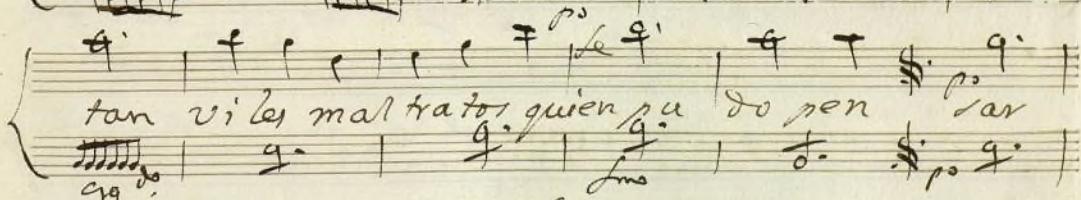 po
tan vi les mal tratos quien pu do pen sar
po
fmo
po